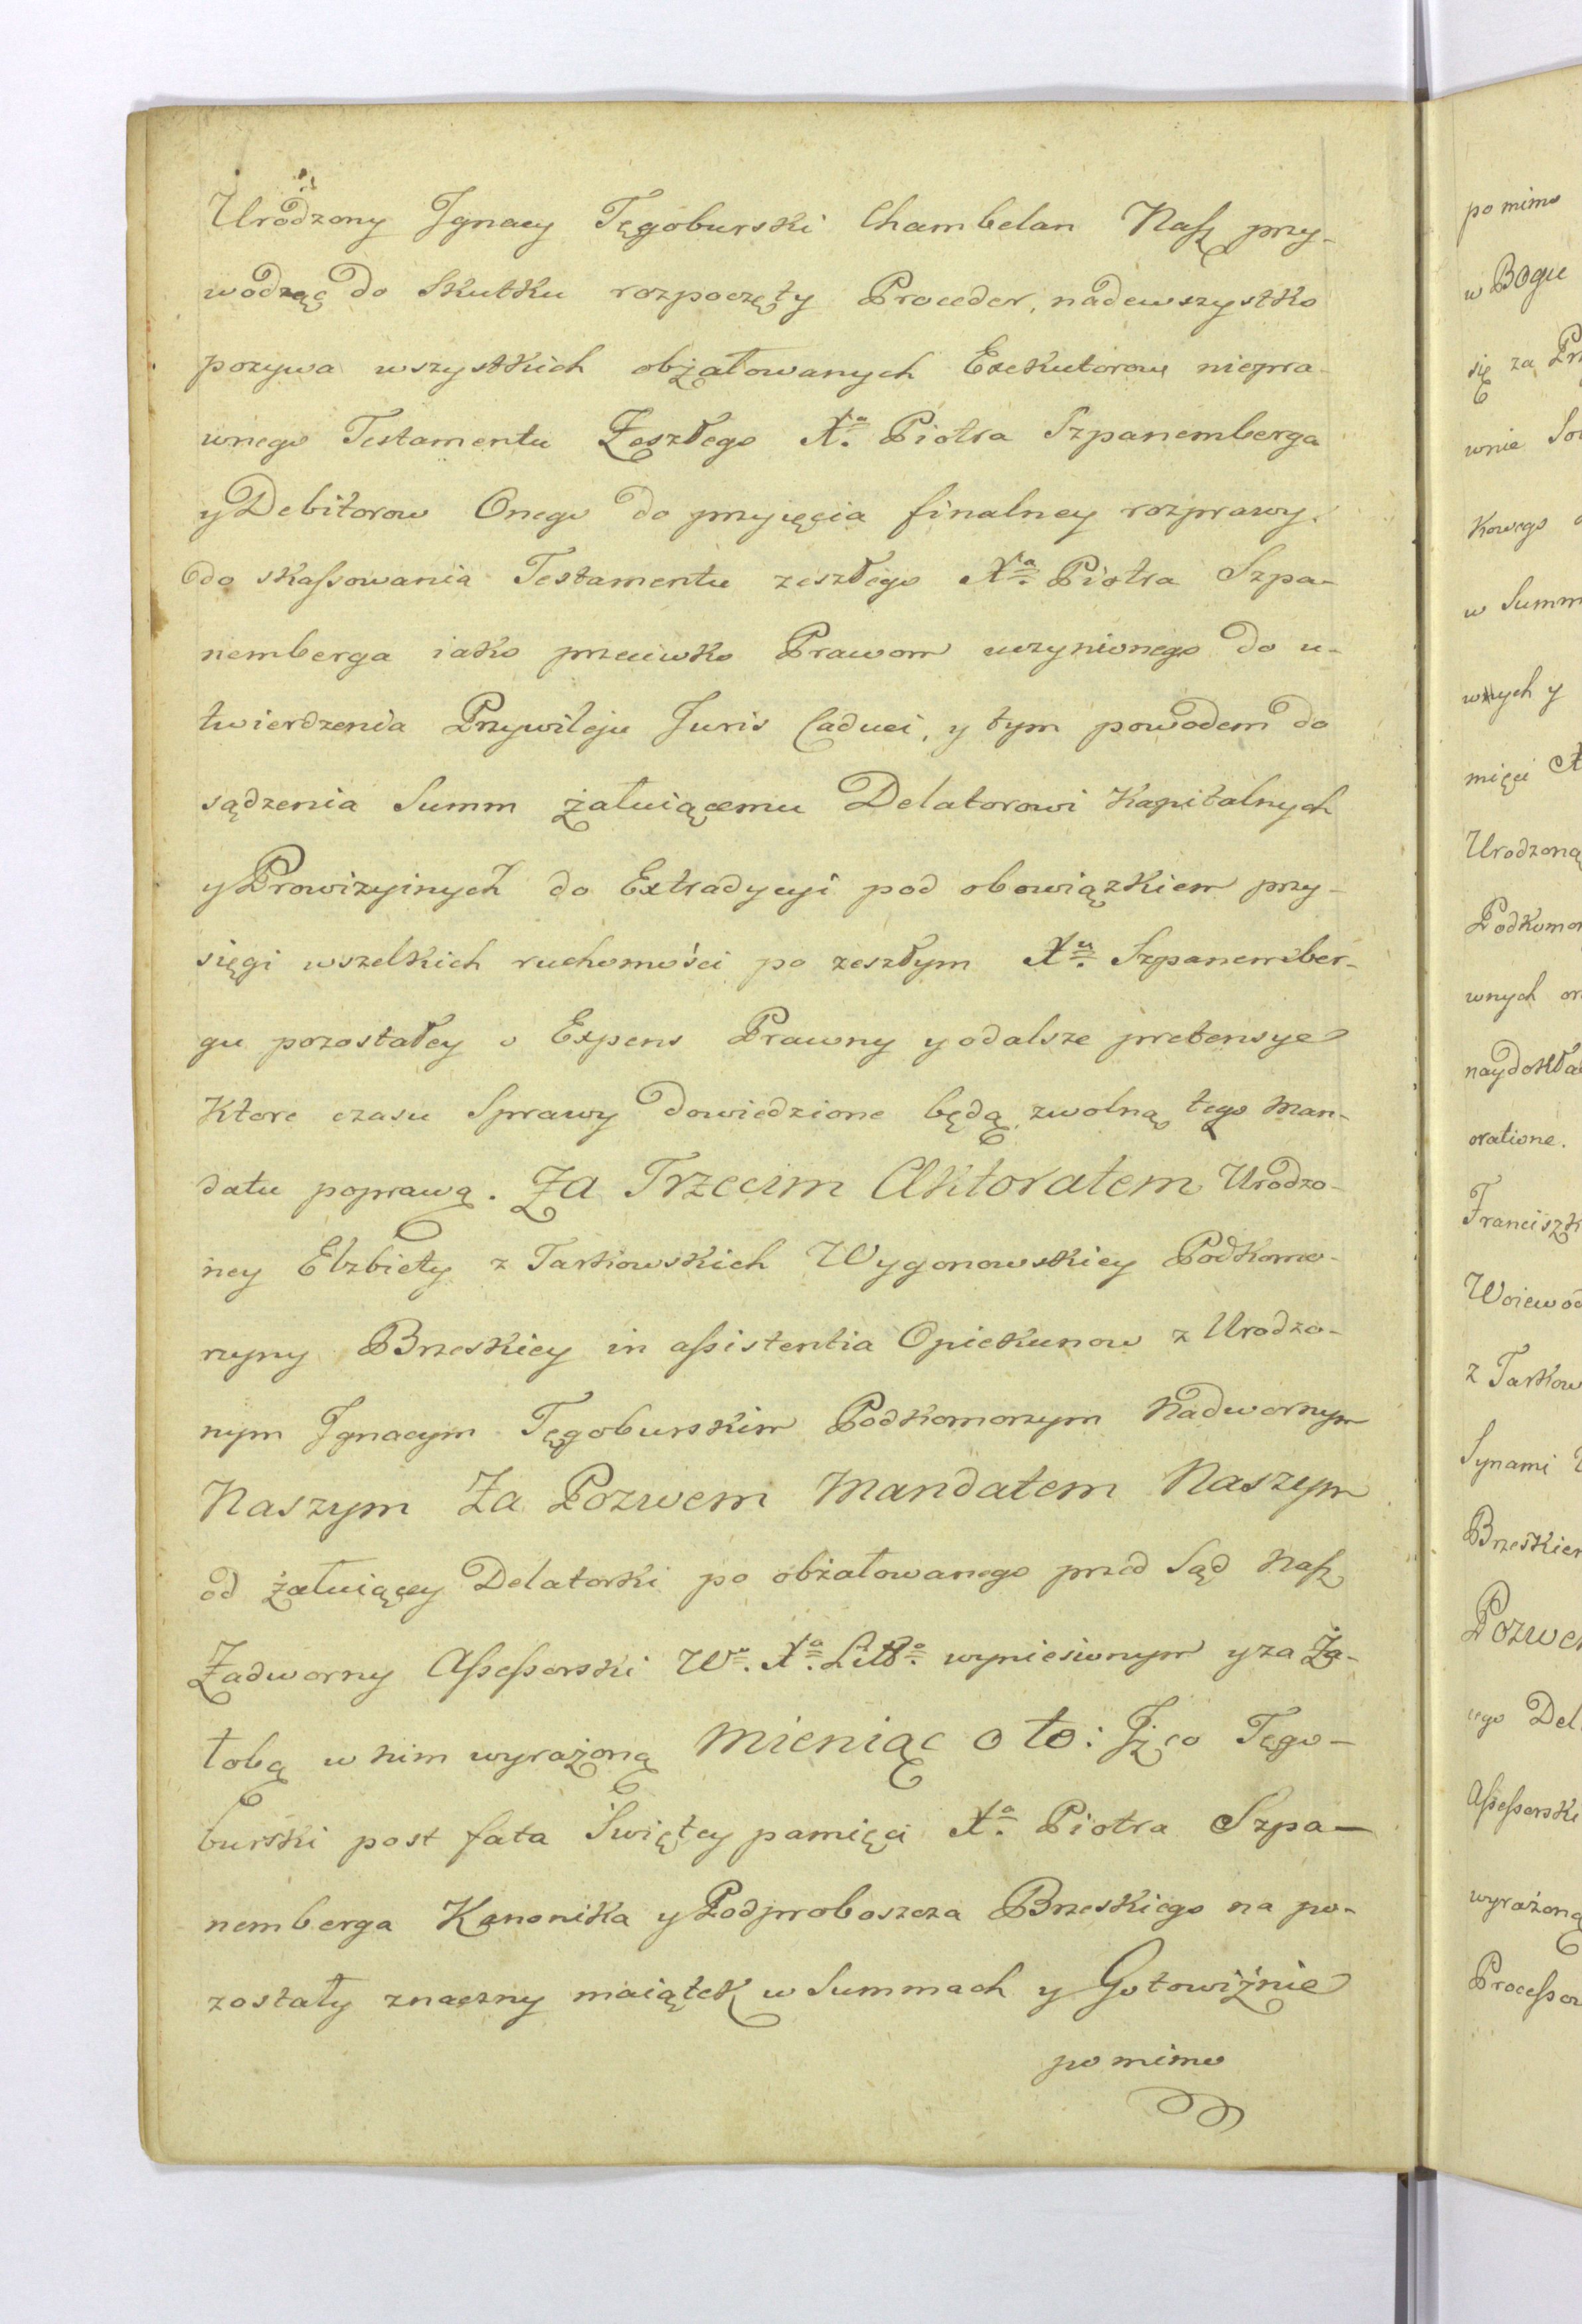 Urodzony Jgnacy Tęgoburski Chambelan Nasz przy-
wodząc do Skutku rozpoczęty Proceder, nadewszystko
pozywa wszystkich obżałowanych Exekutorow niepra-
wnego Testamentu Zeszłego Xa. Piotra Szpanemberga
y Debitorow Onego do przyięcia finalney rozprawy.
do skassowania Testamentu zeszłego Xa. Piotra Szpa-
nemberga iako przeciwko Prawom uczynionego do u-
twierdzenia Przywileju Juris Caduci, y tym powodem do
sądzenia Summ żałuiącemu Delatorowi Kapitalnych
y Prowizyinych do Extradycyi pod obowiązkiem przy-
sięgi wszelkich ruchomości po zeszłym Xu. Szpanember-
gu pozostałey o Expens Prawny y odalsze pretensye
Ktore czasu Sprawy dowiedzione będą, zwolną tego Man-
datu poprawą. Za Trzecim Aktoratem Urodzo-
ney Elzbiety z Tarkowskich Wygonowskiey Podkomo-
rzyny Brzeskiey in assistentia Opiekunow z Urodzo-
nym Jgnacym Tęgoburskim Podkomorzym Nadwornym
Naszym Za Pozwem Mandatem Naszym
od żałuiącey Delatorki po obżałowanego przed Sąd Nasz
Zadworny Assessorski Wo. Xa. Litto. wyniesionym y za Ża-
łobą w nim wyrażoną Mieniąc o to: Jż co Tęgo-
burski post fata Swiętey pamięci Xa. Piotra Szpa-
nemberga Kanonika y Podproboszcza Brzeskiego na po-
zostały znaczny maiątek w Summach y Gotowiźnie
po mimo
po mimo
w Bogu
się za
wnie
Kowego
w Summ
wnych y
mięci
Urodzoną
Podkomor
wnych
naydokła
oratione.
Franciszk
Woiewod
z Tarkow
Synami
Brzeskie
Pozwe
Del
Assessorski
wyrażoną
Processo